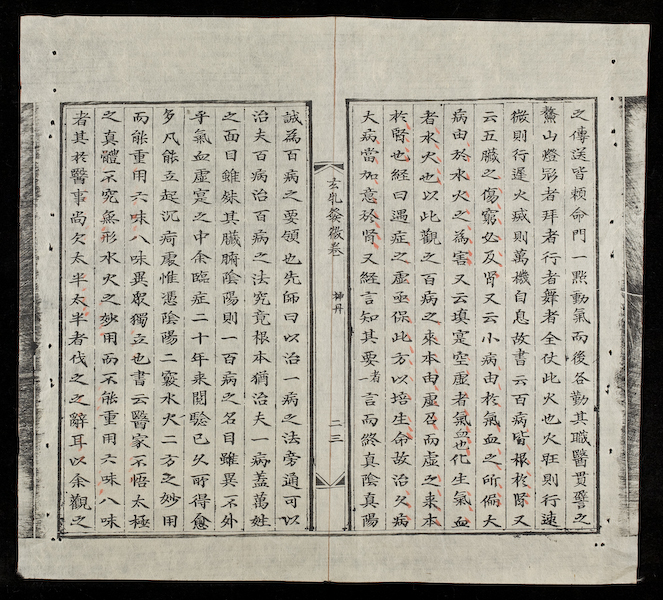 之傳送皆賴命門一㸃動氣而後各勤其職醫貫譬之
鰲山燈影者拜者行者舞者全仗此火也火旺則行速
微則行遲火滅則萬機自息故書云百病皆根於腎又
云五臟之傷窮必及腎又云小病由於氣血之所偏大
病由於水火之為害又云填寔空虛者氣血也化生氣血
者水火也以此觀之百病之來本由虛召而虛之來本
於腎也經曰遇症之虛亟保此方以培生命故治久病
大病當加意於腎又經言知其要者一言而終真陰真陽
玄牝發微卷
柳丹
二三
誠為百病之要領也先師曰以治一病之法旁通可以
治夫百病治百病之法究竟根本猶治夫一病蓋萬姓
之面目雖殊其臟腑陰陽則一百病之名目雖異不外
乎氣血虛寔之中余臨症二十年來閱騐已久所得愈
多凡能立起沉疴處惟憑陰陽二竅水火二方之妙用
而能重用六味八味異眾獨立也書云醫家不悟太極
之真體不究無形水火之妙用而不能重用六味八味
者其於醫事尚欠太半太半者伐之之辭耳以余觀之